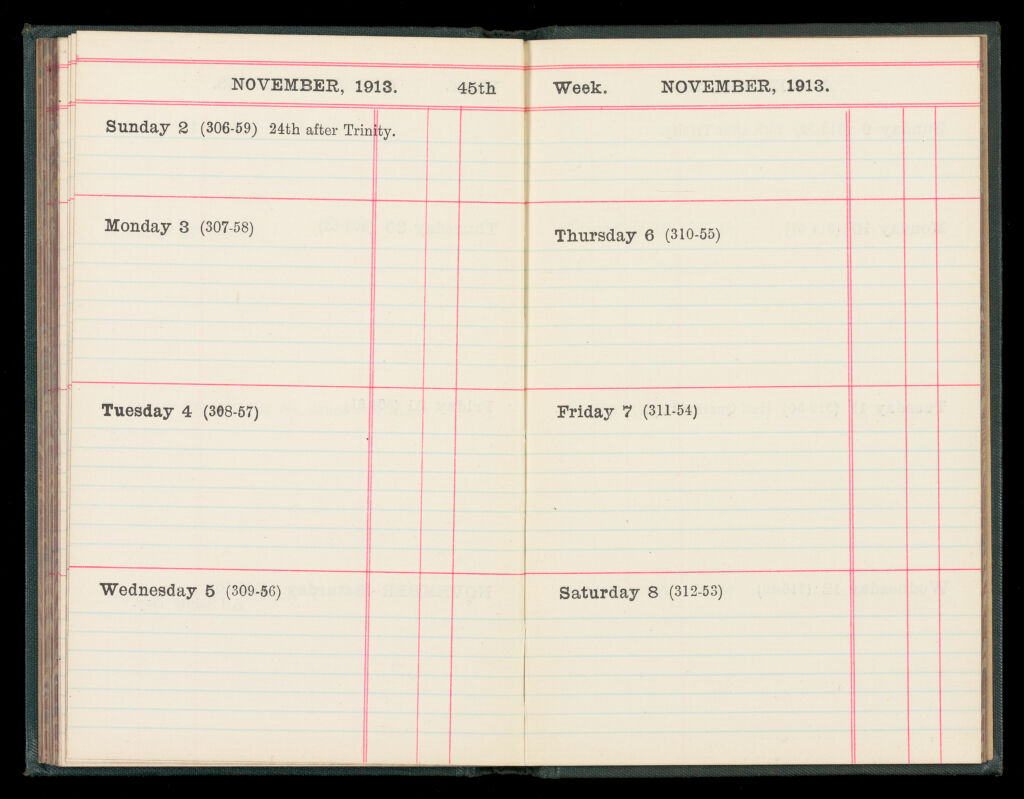 NOVEMBER, 1913. 45th
Sunday 2 (306-59) 24th after Trinity.
Monday 3 (307-58)
Tuesday 4 (308-57)
Wednesday 5 (309-56)
Week. NOVEMBER, 1913.
Thursday 6 (310-55)
Friday 7 (311-54)
Saturday 8 (312-53)